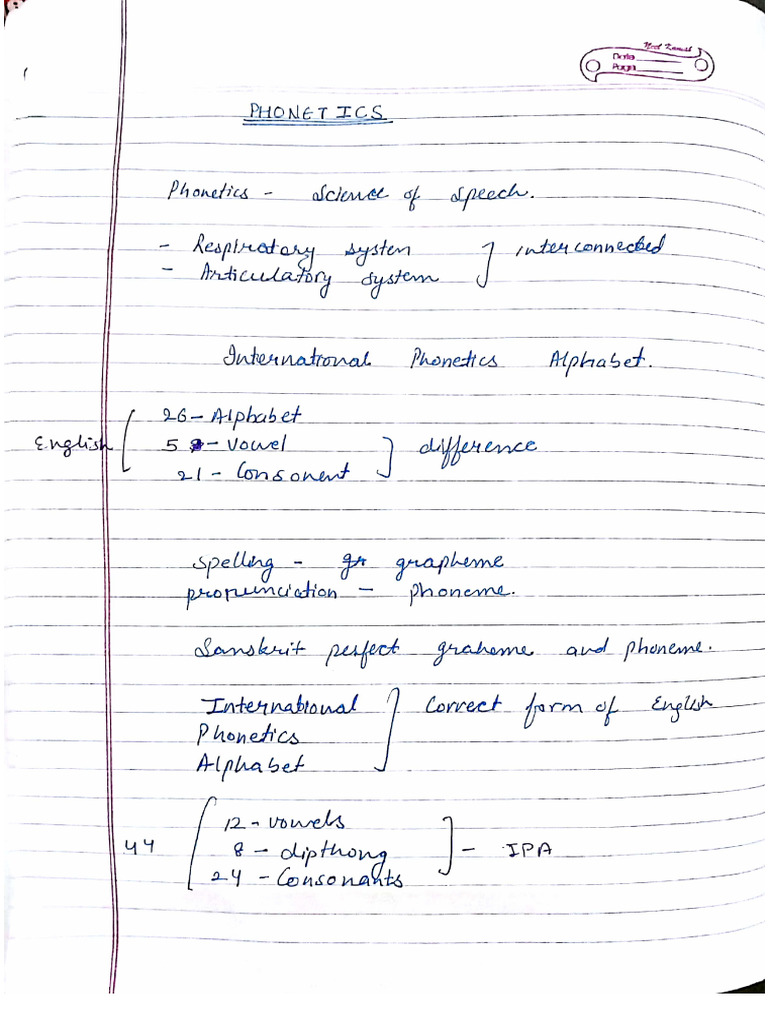 Neel Kamal
Date
Page
PHONETICS
Phonetics - Science of Speech.
- Respiratory system ] interconnected
- Articulatory system
International Phonetics Alphabet.
26 - Alphabet
English [ 5 - vowel ] difference
21 - Consonent
Spelling - gr grapheme
pronunciation - phoneme.
Sanskrit perfect graheme and phoneme.
International ] Correct form of English
Phonetics
Alphabet
12 - vowels
44 [ 8 - dipthong ] - IPA
24 - Consonants